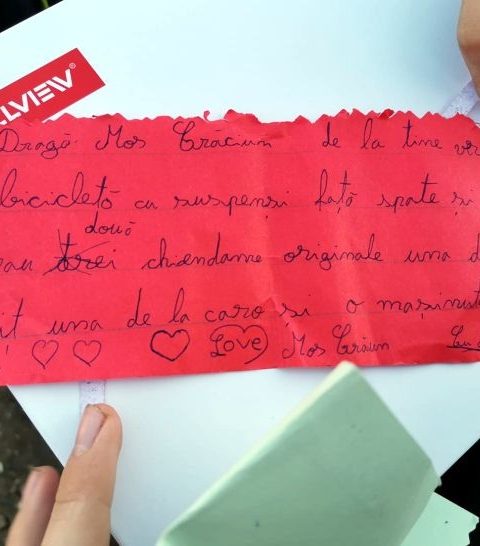 LLVIEW®
Dragă Mos Crăciun de la tine vre
bicicletă cu suspensi față spate și
două
eau trei chiendame originale una d
it una de la caro și o mașinut
Love Mos Crăiun Cu